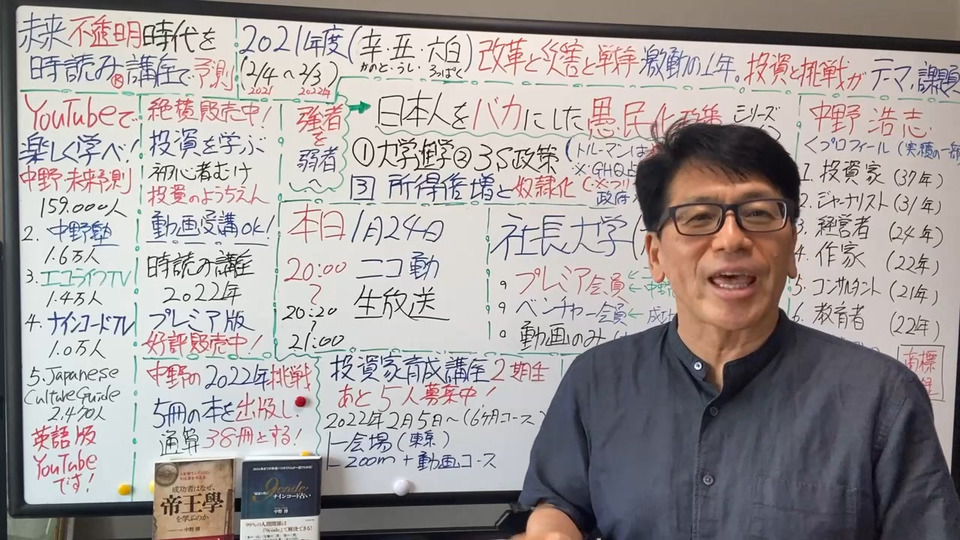 未来不透明時代を
時読み®講座で予測
2021年度(辛・丑・六白)
かのと・うし・ろっぱく
(2/4〜2/3)
2021 2022年
改革と災害と戦争 激動の1年。投資と挑戦がテーマ、課題
YouTubeで
楽しく学べ!
中野未来予測
159.000人
2. 中野塾
1.6万人
3. エコライフTV
1.4万人
4. ナインコードTV
1.0万人
5. Japanese
Culture Guide
英語版
YouTube
です!
絶賛販売中!
投資を学ぶ
初心者むけ
投資のようちえん
動画受講OK!
時読み講座
2022年
プレミア版
好評販売中!
中野の2022年挑戦
5冊の本を出版し
通算38冊とする!
強者
を
弱者
へ
日本人をバカにした愚民化政策
シリーズ
①大学進学②3S政策
(トルーマン
※GHQ
③所得倍増と奴隷化
政府
本日 1月24日
20:00
20:20
21:00
ニコ動
生放送
社長大学
プレミア会員
ベンチャー会員
動画のみ
投資家育成講座2期生
あと5人募集中!
2022年2月5日〜(6ヶ月コース)
会場(東京)
zoom+動画コース
中野 浩志
<プロフィール(実績の一部
1. 投資家(37年)
2. ジャーナリスト(31年)
3. 経営者(24年)
4. 作家(22年)
5. コンサルタント(21年)
6. 教育者(22年)
商標
成功者はなぜ、
帝王學
を学ぶのか
中野 博
9code
ナインコード占い
中野 博